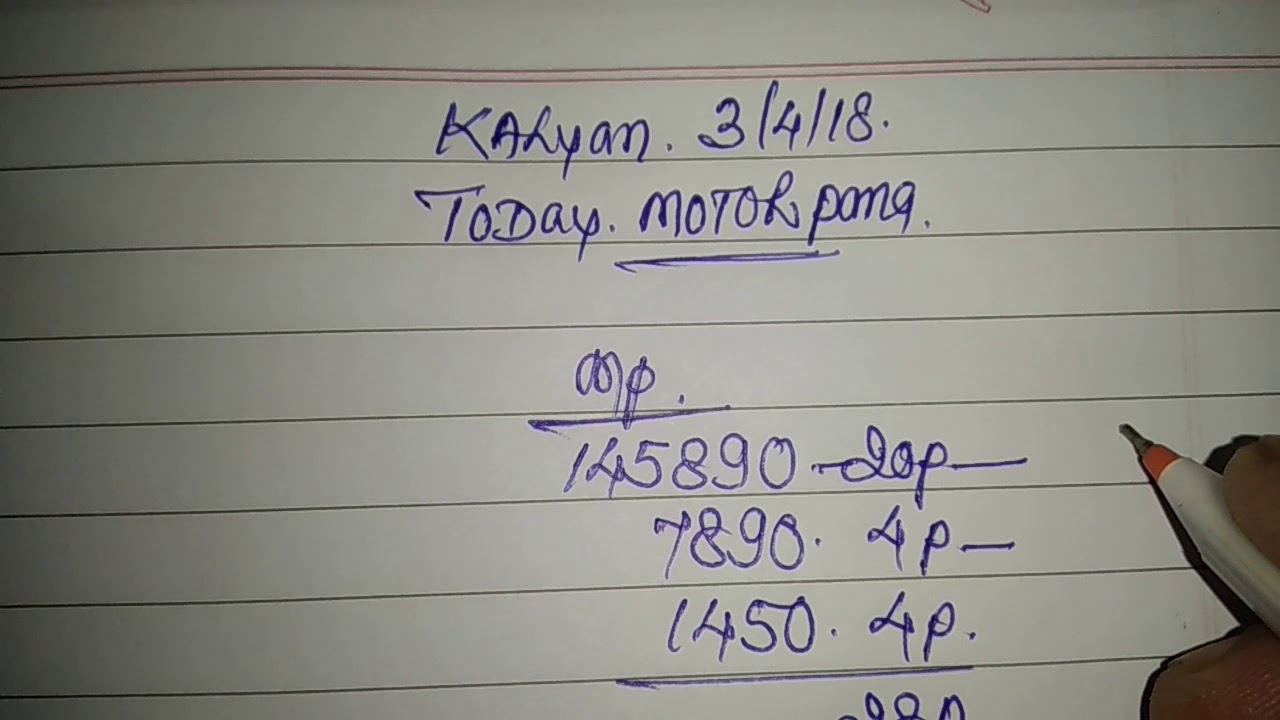 KALyan. 3/4/18.
TODay. MOTOR pana.
mp.
145890 - 20p —
7890. 4p —
1450. 4p.
28p